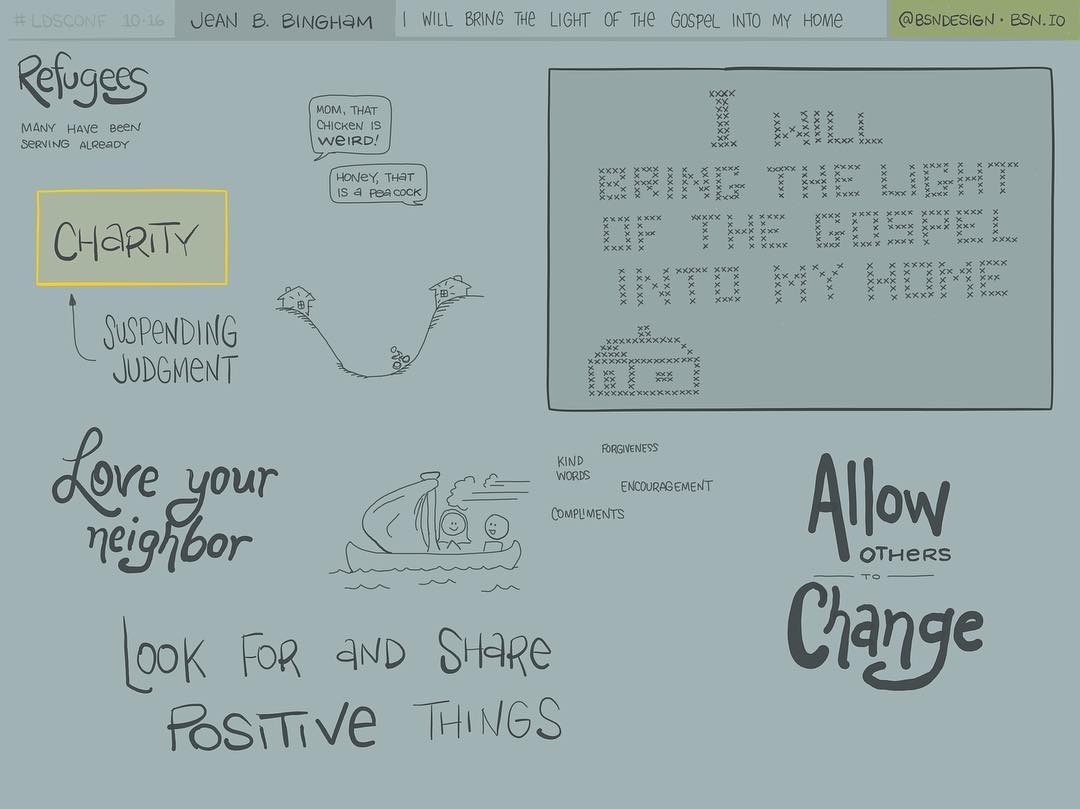 #LDSCONF 10-16
JEAN B. BINGHAM
I WILL BRING THE LIGHT OF THE GOSPEL INTO MY HOME
@BSNDESIGN • BSN.IO
Refugees
MANY HAVE BEEN
SERVING ALREADY
MOM, THAT
CHICKEN IS
WEIRD!
HONEY, THAT
IS A PEACOCK
CHARITY
SUSPENDING
JUDGMENT
I WILL
BRING THE LIGHT
OF THE GOSPEL
INTO MY HOME
Love your
neighbor
FORGIVENESS
KIND
WORDS
ENCOURAGEMENT
COMPLIMENTS
Allow
OTHERS
TO
Change
LOOK FOR AND SHARE
POSITIVE THINGS